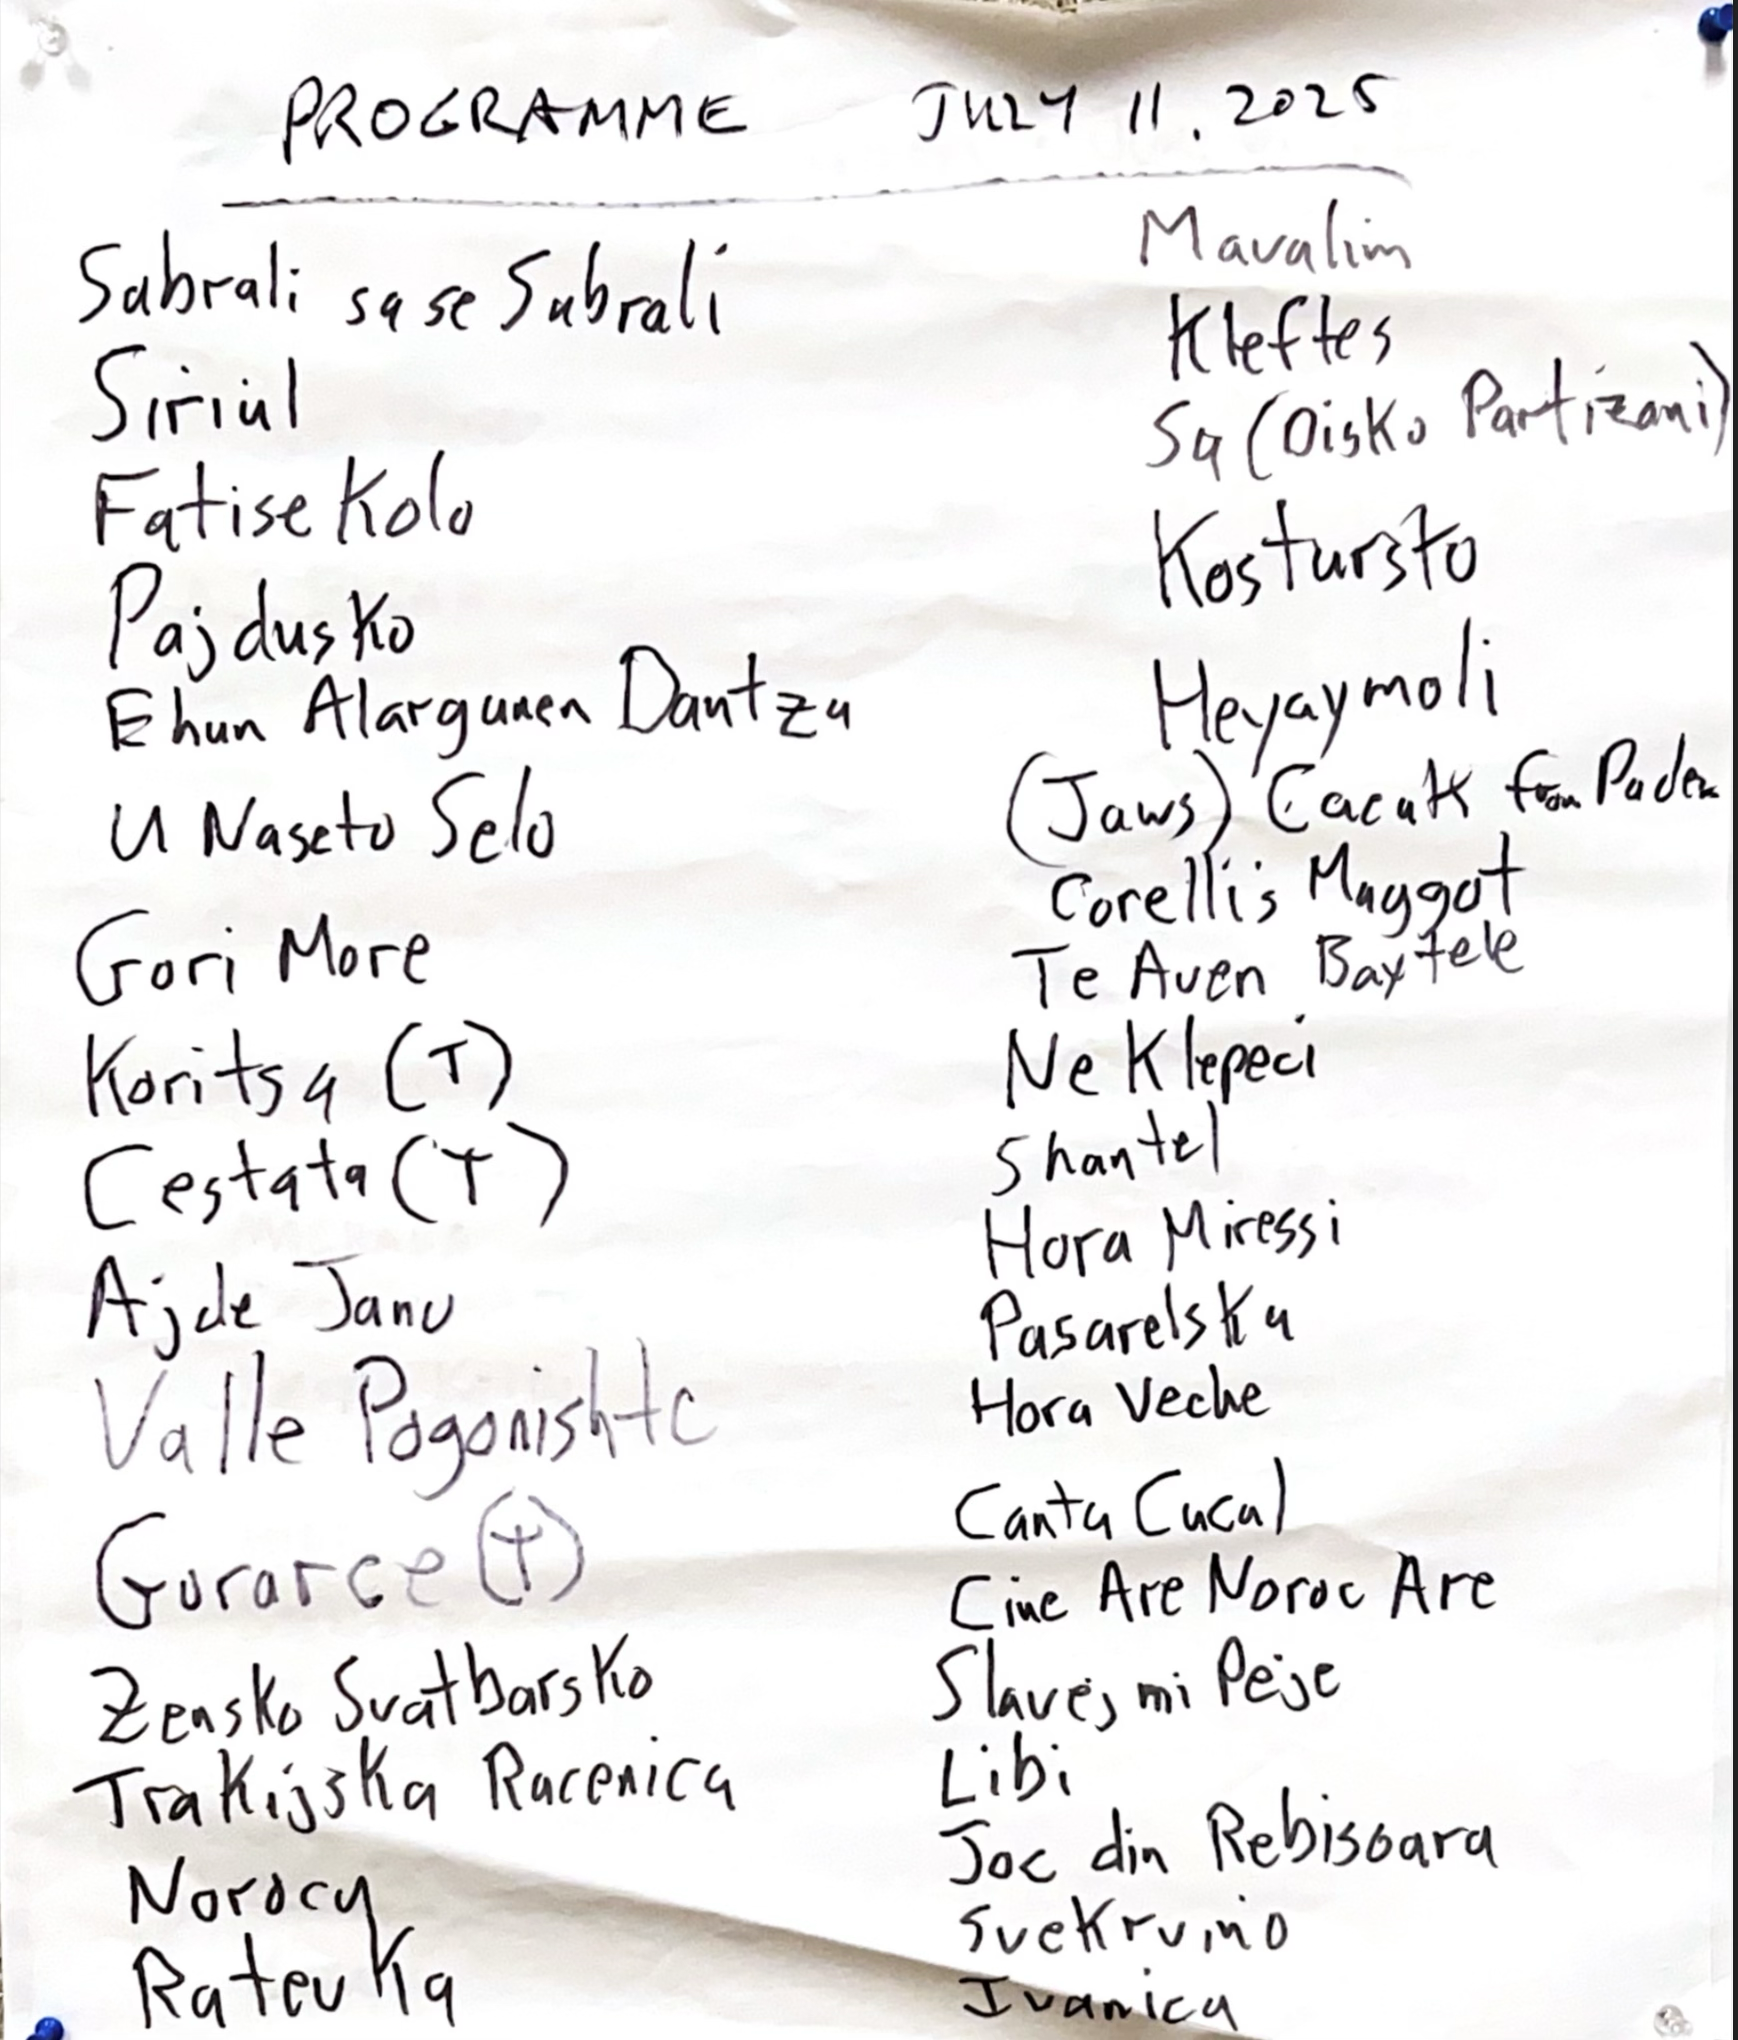 PROGRAMME JULY 11, 2025
Sabrali sa se Sabrali
Siriul
Fatise Kolo
Pajdusko
Ehun Alargunen Dantza
U Naseto Selo
Gori More
Koritsa (T)
Cestata (T)
Ajde Janu
Valle Pogonishte
Gurarce (T)
Zensko Svatbarsko
Trakijska Racenica
Norocu
Ratevka
Mavalim
Kleftes
Sa (Disko Partizani)
Kostursto
Heyaymoli
(Jaws) Cacak from
Corelli's Maggot
Te Aven Baxtele
Ne Klepeci
Shantel
Hora Miressi
Pasarelska
Hora Veche
Canta Cucul
Cine Are Noroc Are
Slavej mi Peje
Libi
Joc din Rebisoara
Svekrvino
Ivanica